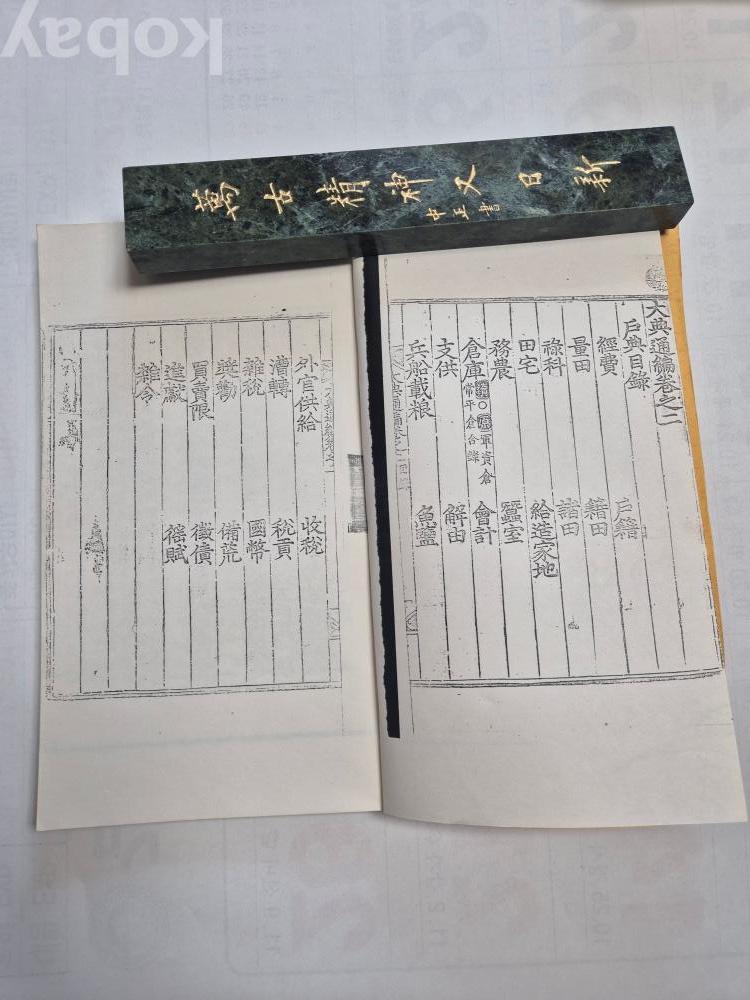 kobay
萬古精神又日新
中正書
大典通編卷之二
戶典目錄
經費 戶籍
量田 籍田
祿科 諸田
田宅 給造家地
務農 蠶室
倉庫 ○ 軍資倉 常平倉合錄 會計
支供 解由
兵船載粮 魚鹽
外官供給 收稅
漕轉 稅貢
雜稅 國幣
奬勸 備荒
買賣限 徵債
進獻 徭賦
雜令